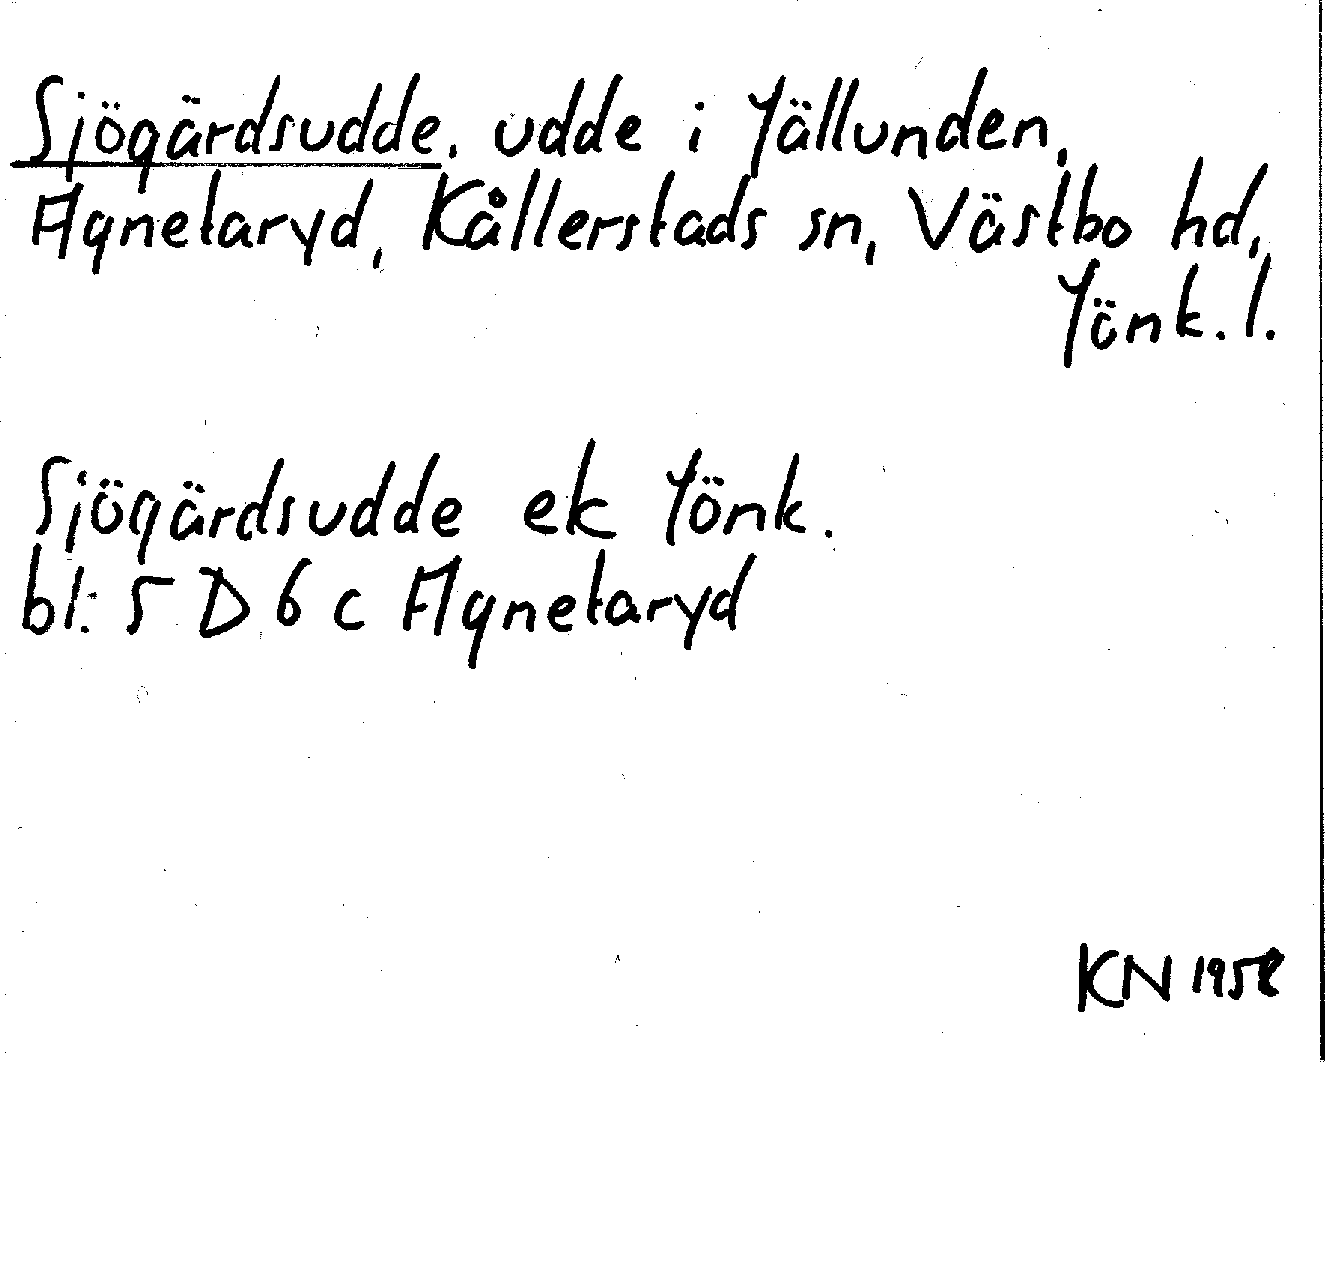 Sjögärdsudde, udde i Jällunden,
Agnetaryd, Kållerstads sn, Västbo hd,
Jönk. l.
Sjögärdsudde ek Jönk.
bl: 5 D 6 c Agnetaryd
KN 1958